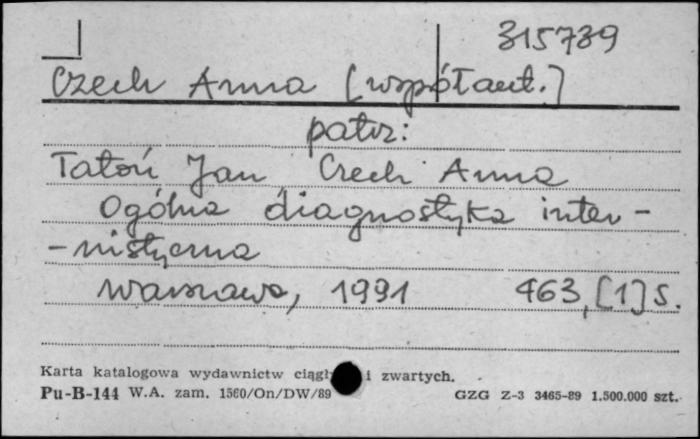 315739
Czech Anna [współaut.]
patrz:
Tatoń Jan Czech Anna
Ogólna diagnostyka inter-
-nistyczna
Warszawa, 1991 463, [1] s.
Karta katalogowa wydawnictw ciągł i zwartych.
Pu-B-144 W.A. zam. 1560/On/DW/89 GZG Z-3 3465-89 1.500.000 szt.